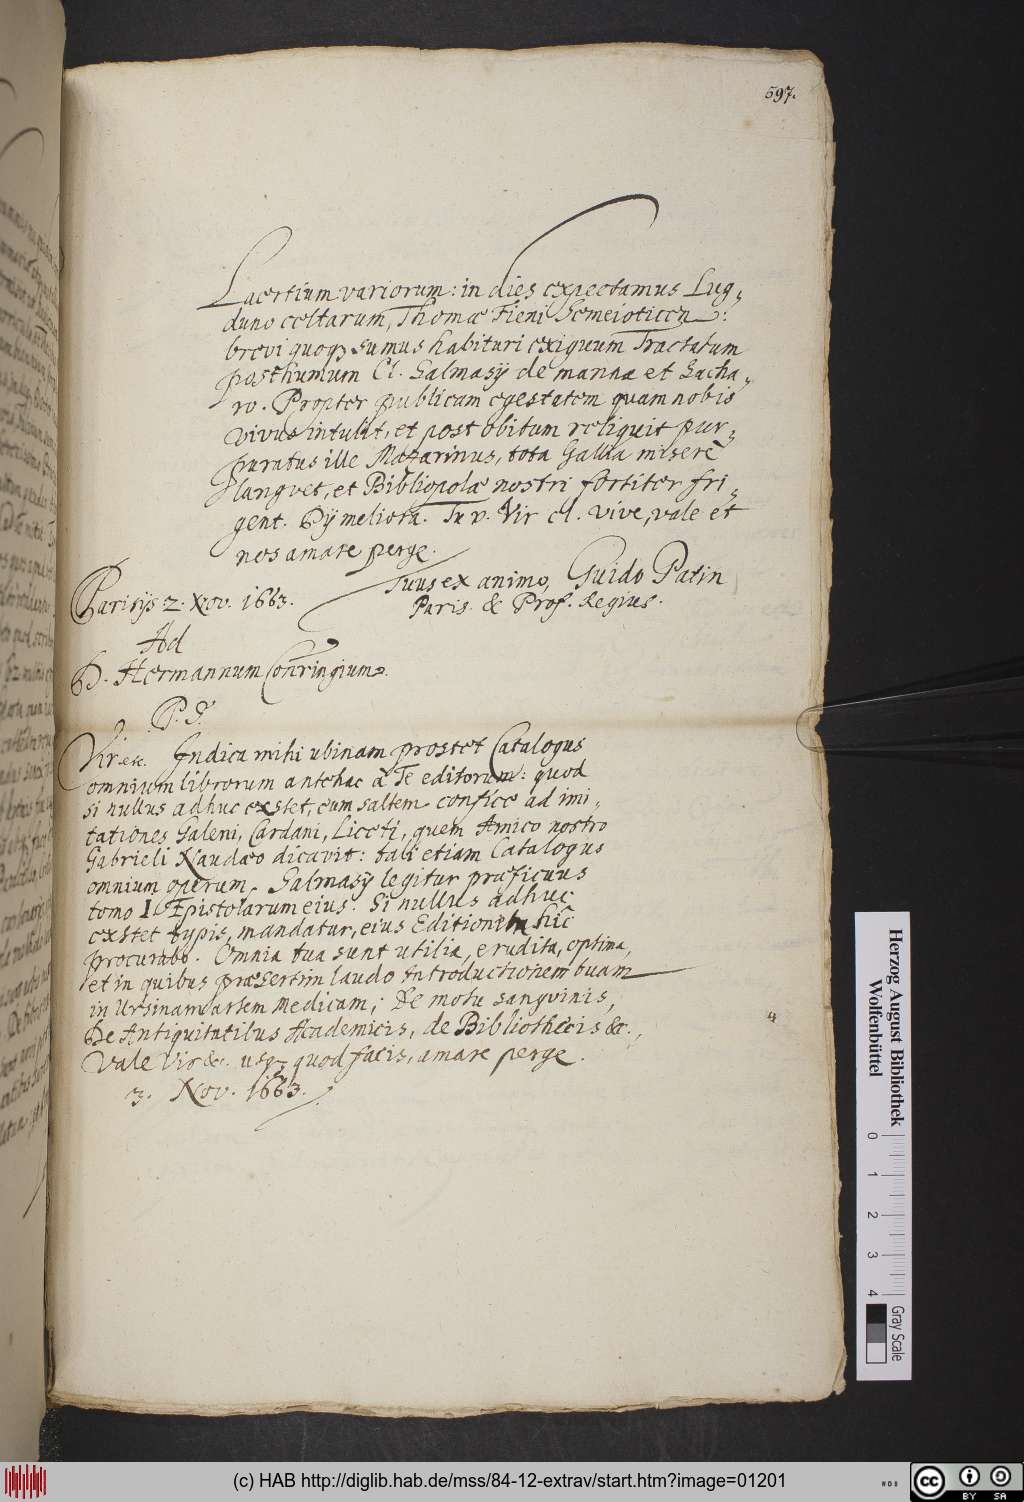 597.
Laertium variorum: in dies expectamus Lug-
duno celtarum, Thomæ Fieni Semeioticen:
brevi quoq; sumus habituri exiguum Tractatum
posthumum Cl. Salmasij de manna et Sacha-
ro. Propter publicam egestatem quam nobis
vivus intulit, et post obitum reliquit pur-
puratus ille Mazarinus, tota Gallia miserè
languet, et Bibliopolæ nostri fortiter fri-
gent. Dij meliora. Tu v. Vir cl. vive, vale et
nos amare perge.
Tuus ex animo, Guido Patin
Parisijs 2. Nov. 1663.
Paris. & Prof. Regius.
Ad
D. Hermannum Conringium.
P. S.
Vir etc. Indica mihi ubinam prostet Catalogus
omnium librorum antehac à Te editorum: quod
si nullus adhuc exstet, eum saltem confice ad imi-
tationes Galeni, Cardani, Liceti, quem Amico nostro
Gabrieli Naudæo dicavit: tali etiam Catalogus
omnium operum Salmasij legitur præficuus
tomo I. Epistolarum eius. Si nullus adhuc
exstet typis mandatur, eius Editionem hîc
procurabo. Omnia tua sunt utilia, erudita, optima,
et in quibus præsertim laudo Introductionem tuam
in Ursinam artem Medicam; De motu sanguinis,
De Antiquitatibus Academicis, de Bibliothecis &c.,
Vale Vir &c. usq; quod facis, amare perge.
3. Nov. 1663.
Herzog August Bibliothek
Wolfenbüttel
0 1 2 3 4
Gray Scale
(c) HAB http://diglib.hab.de/mss/84-12-extrav/start.htm?image=01201
cc BY SA